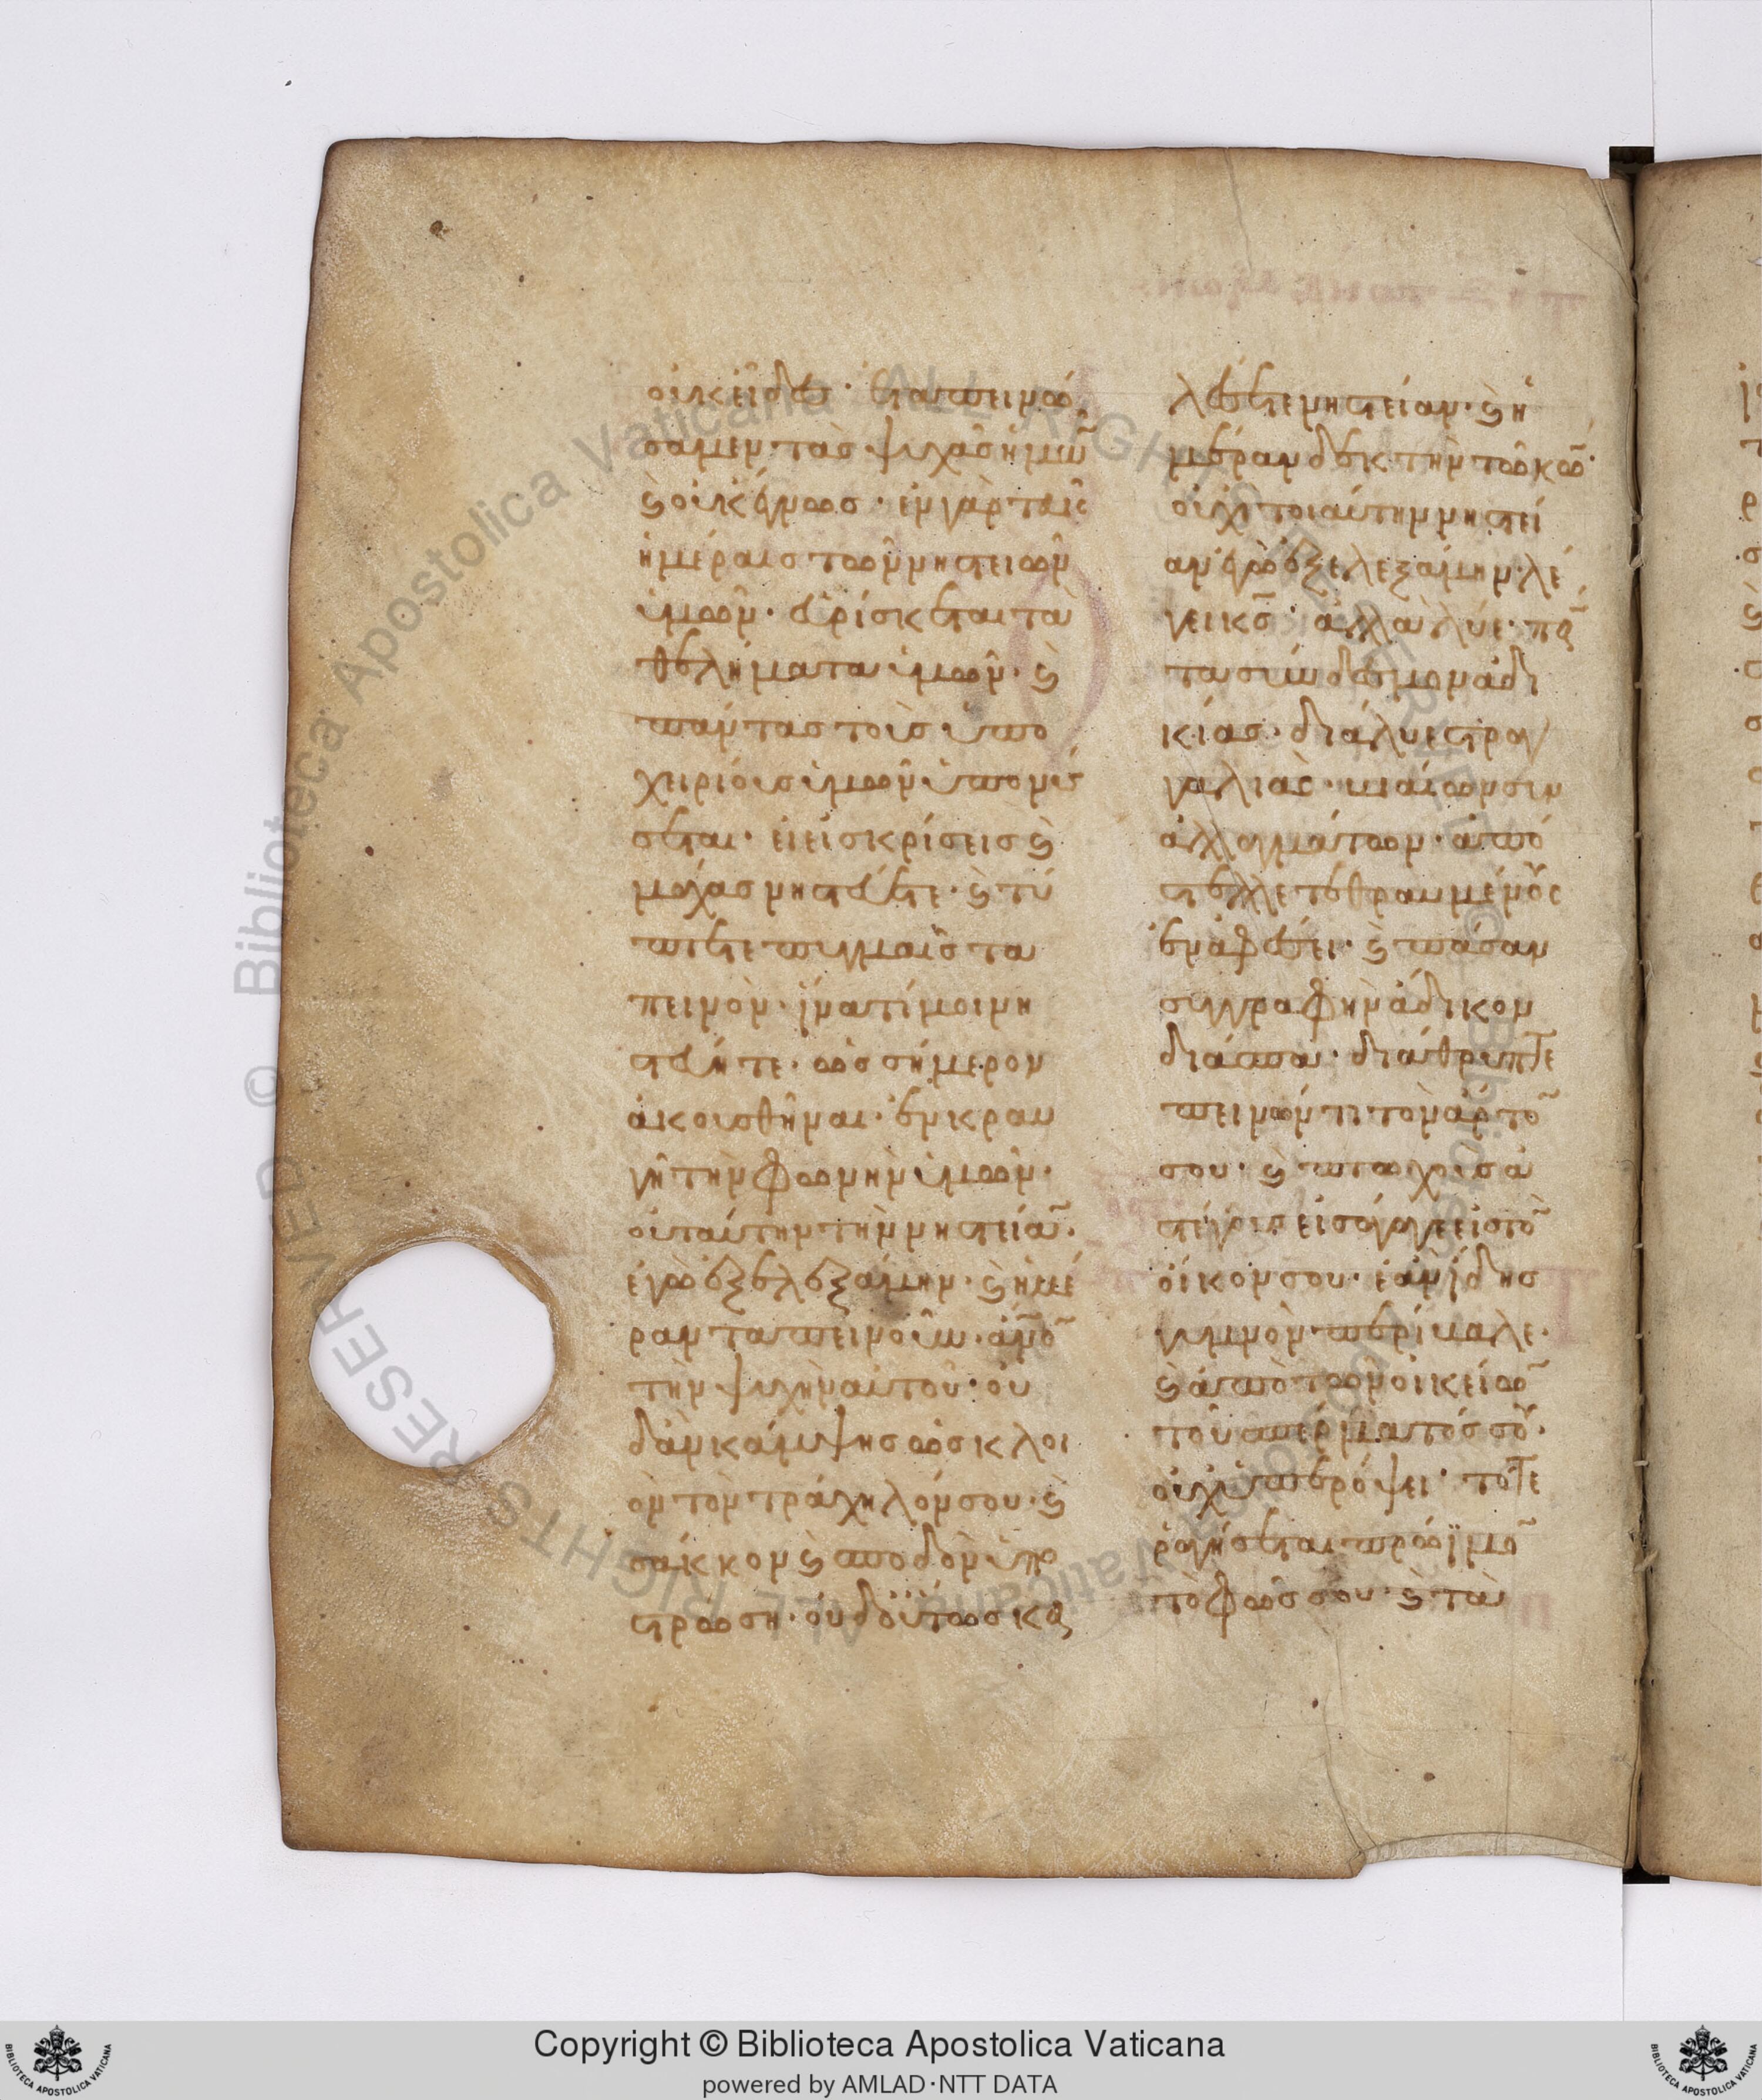 οὐκ εἶδες· ἐταπεινώ
σαμεν τὰς ψυχὰς ἡμῶ̅
ϗ οὐκ ἔγνως· ἐν γὰρ ταῖς
ἡμέραις τῶν νηστειῶν
ὑμῶν· εὑρίσκεται τὰ
θελήματα ὑμῶν· ϗ
πάντας τοὺς ὑπο
χειρίους ὑμῶν ὑπονύσ
σεται· εἰ εἰς κρίσεις ϗ
μάχας νηστεύετε· ϗ τύ
πτετε πυγμαῖς τα
πεινὸν· ἵνα τί μοι νη
στεύητε· ὡς σήμερον
ἀκουσθῆναι· ἐν κραυ
γῇ τὴν φωνὴν ὑμῶν·
οὐ ταύτην τὴν νηστεία̅·
ἐγὼ ἐξελεξάμην· ϗ ἡμέ
ραν ταπεινοῦν· α̅νο̅
τὴν ψυχὴν αὐτοῦ· οὐ
δ' ἂν κάμψης ὡς κλοι
ὸν τὸν τράχηλόν σου· ϗ
σάκκον ϗ σποδὸν ὑπο
στρώση· οὐδ' οὕτως κα
λέσετε νηστείαν· ϗ ἡ
μέραν δεκτὴν τῶ κω̅·
οὐχὶ τοιαύτην νηστεί
αν ἐγὼ ἐξελεξάμην· λέ
γει κς̅· ἀλλὰ λύε· πα̅
τα σύνδεσμον ἀδι
κίας· διάλυε στραγ
γαλιὰς· βιαίων συν
αλλαγμάτων· ἀπό
στελλε τεθραυμένους
ἐν ἀφέσει· ϗ πᾶσαν
συγγραφὴν ἄδικον
διάσπα· διάθρυπτε
πεινῶντι τὸν ἄρτο̅
σου· ϗ πτωχοὺς ἀ
στέγους εἴσαγαγε εἰς το̅
οἶκόν σου· ἐὰν ἴδης
γυμνὸν περίβαλε·
ϗ ἀπὸ τῶν οἰκείω̅
τοῦ σπέρματός σου·
οὐχ ὑπερόψει· τότε
ῥαγήσεται πρώϊμο̅
τὸ φῶς σου· ϗ τὰ
Copyright © Biblioteca Apostolica Vaticana
powered by AMLAD·NTT DATA